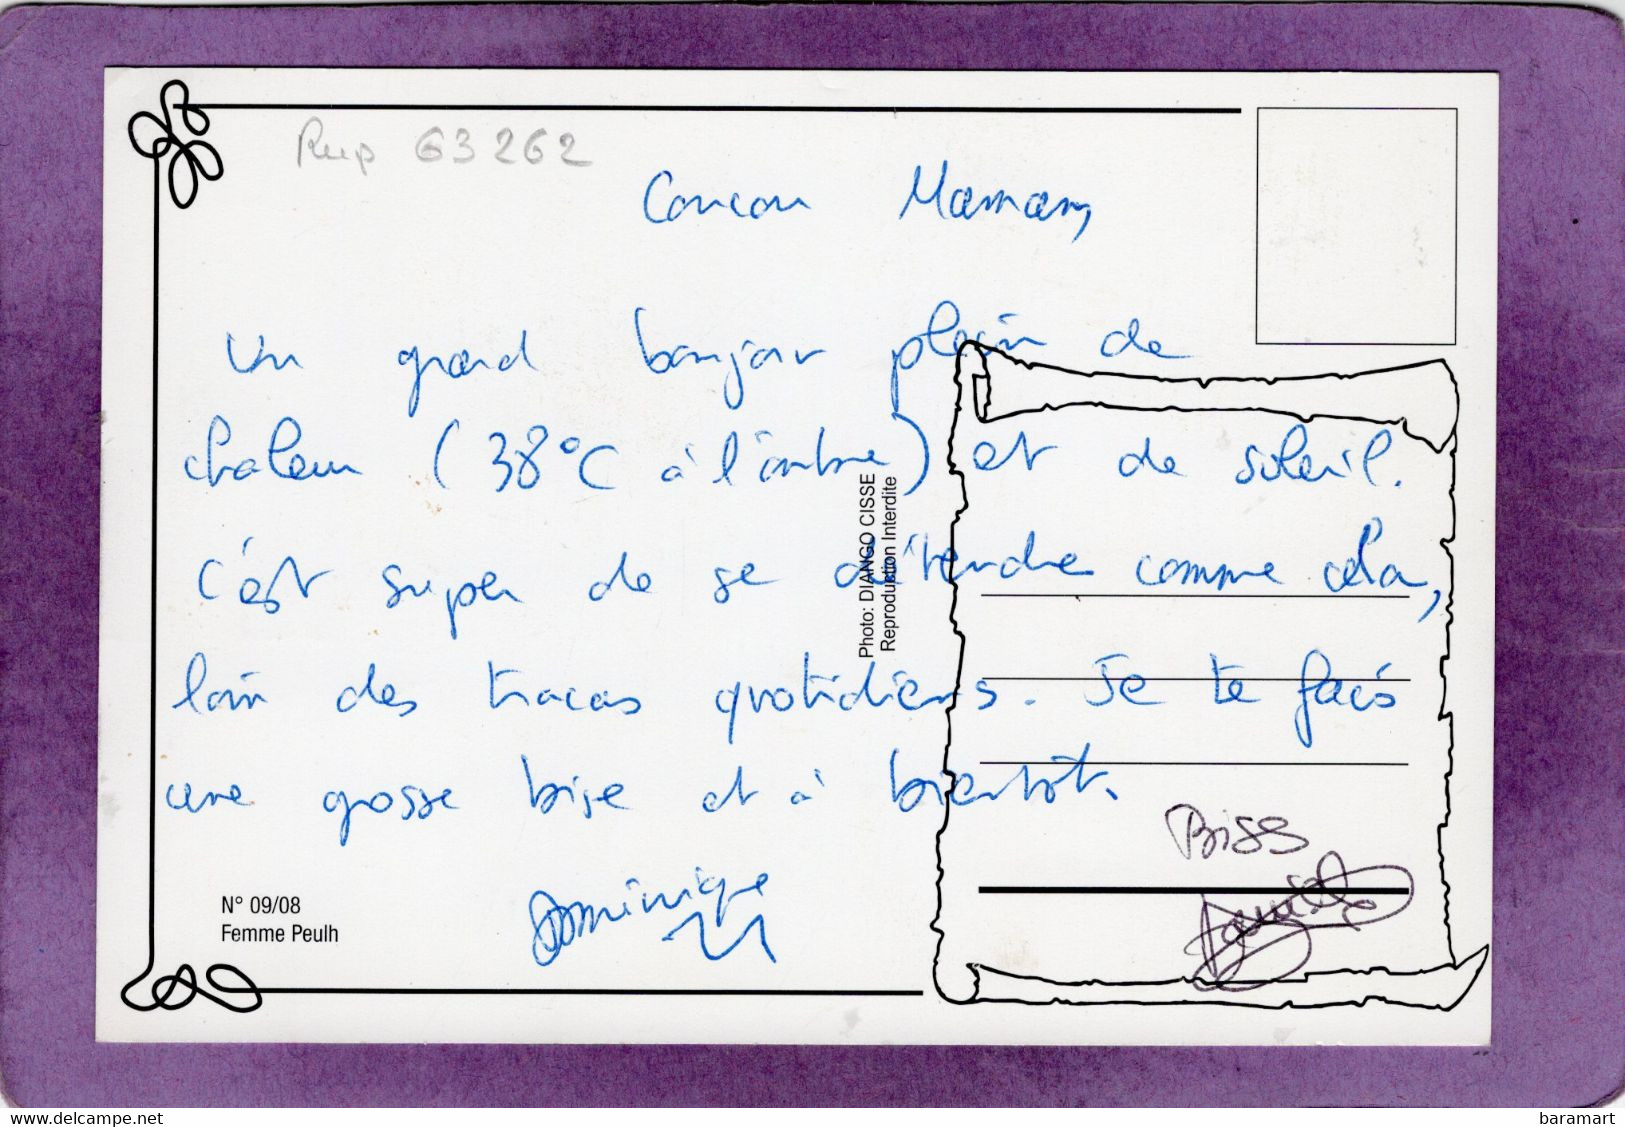 63262
Coucou Maman,
Un grand bonjour plein de
chaleur (38°C à l'ombre) et de soleil.
C'est super de se détendre comme cela,
loin des tracas quotidiens. Je te fais
une grosse bise et à bientôt.
Dominique
Photo: DIANGO CISSE
Reproduction Interdite
N° 09/08
Femme Peulh
www.delcampe.net
baramart